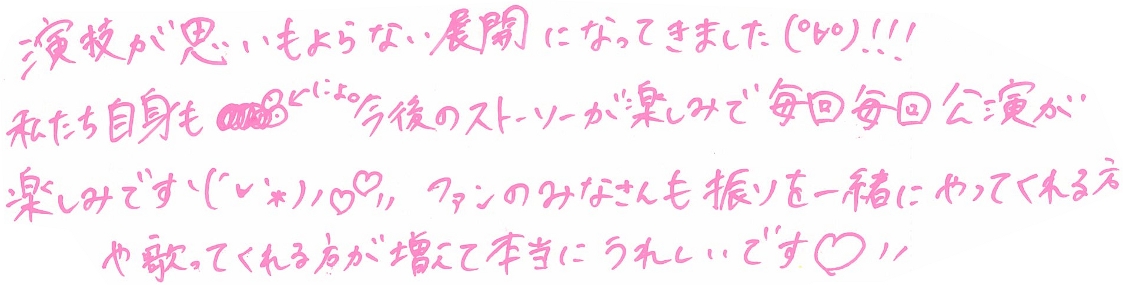 演技が思いもよらない展開になってきました(°∀°)!!!
私たち自身も ←にょ。今後のストーリーが楽しみで毎回毎回公演が
楽しみですヽ(´∨`*)ノ♡♡〃 ファンのみなさんも振りを一緒にやってくれる方
や歌ってくれる方が増えて本当にうれしいです♡〃